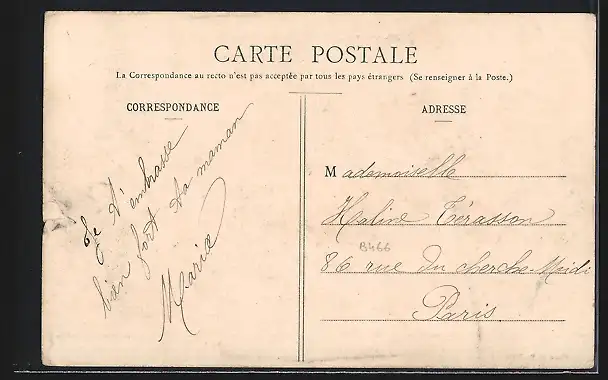 CARTE POSTALE
La Correspondance au recto n'est pas acceptée par tous les pays étrangers (Se renseigner à la Poste.)
CORRESPONDANCE
Je t'embrasse
bien fort ta maman
Maria
ADRESSE
Mademoiselle
Haline Térasson
B466
86 rue du cherche-Midi
Paris